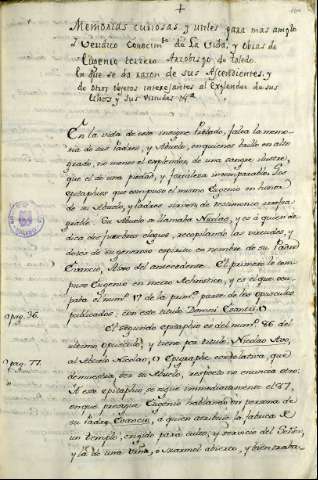 +
Memorias curiosas y utiles para mas amplo
y veridico conocim.to de La Vida, y Obras de
Eugenio tercero Arzobispo de Toledo.
En que se da razon de sus Ascendientes, y
de otros objetos interesantes al Explendor de sus
libros y sus virtudes
En la vida de este insigne Prelado, falta la memo-
ria de sus Padres, y Abuelo, en quienes brilló en alto
grado, no menos el explendor, de una sangre ilustre,
que el de una piedad, y fortaleza incomparables. Los
epitaphios que compuso el mismo Eugenio en honor
de su Abuelo, y Padres sirven de testimonio irrefra-
gable. Su Abuelo se llamaba Nicolas, y es a quien de-
dica dos funebres elogios, recopilando las virtudes, y
dotes de su generoso espiritu en nombre de su Padre
Evancio, Hijo del antecedente. El primero lo com-
puso Eugenio en metro Achrostico, y es el que ocu-
pa el num.º 17 de la prim.a parte de los opusculos
publicados: con este titulo
pag. 36.
El segundo epitaphio es del num.º 86 del
ultimo opusculo, y tiene por titulo: Nicolao Avo,
pag. 77.
al Abuelo Nicolao, Epigraphe correlativa, que
demuestra ser su Abuelo, respecto no enuncia otro:
A este epitaphio se sigue immediatamente el 87,
en que prosigue Eugenio hablando en persona de
su Padre Evancio, a quien atribuye la fabrica de
un templo, erigido para culto, y servicio del Señor,
y la de una Viña, abierto, y bien